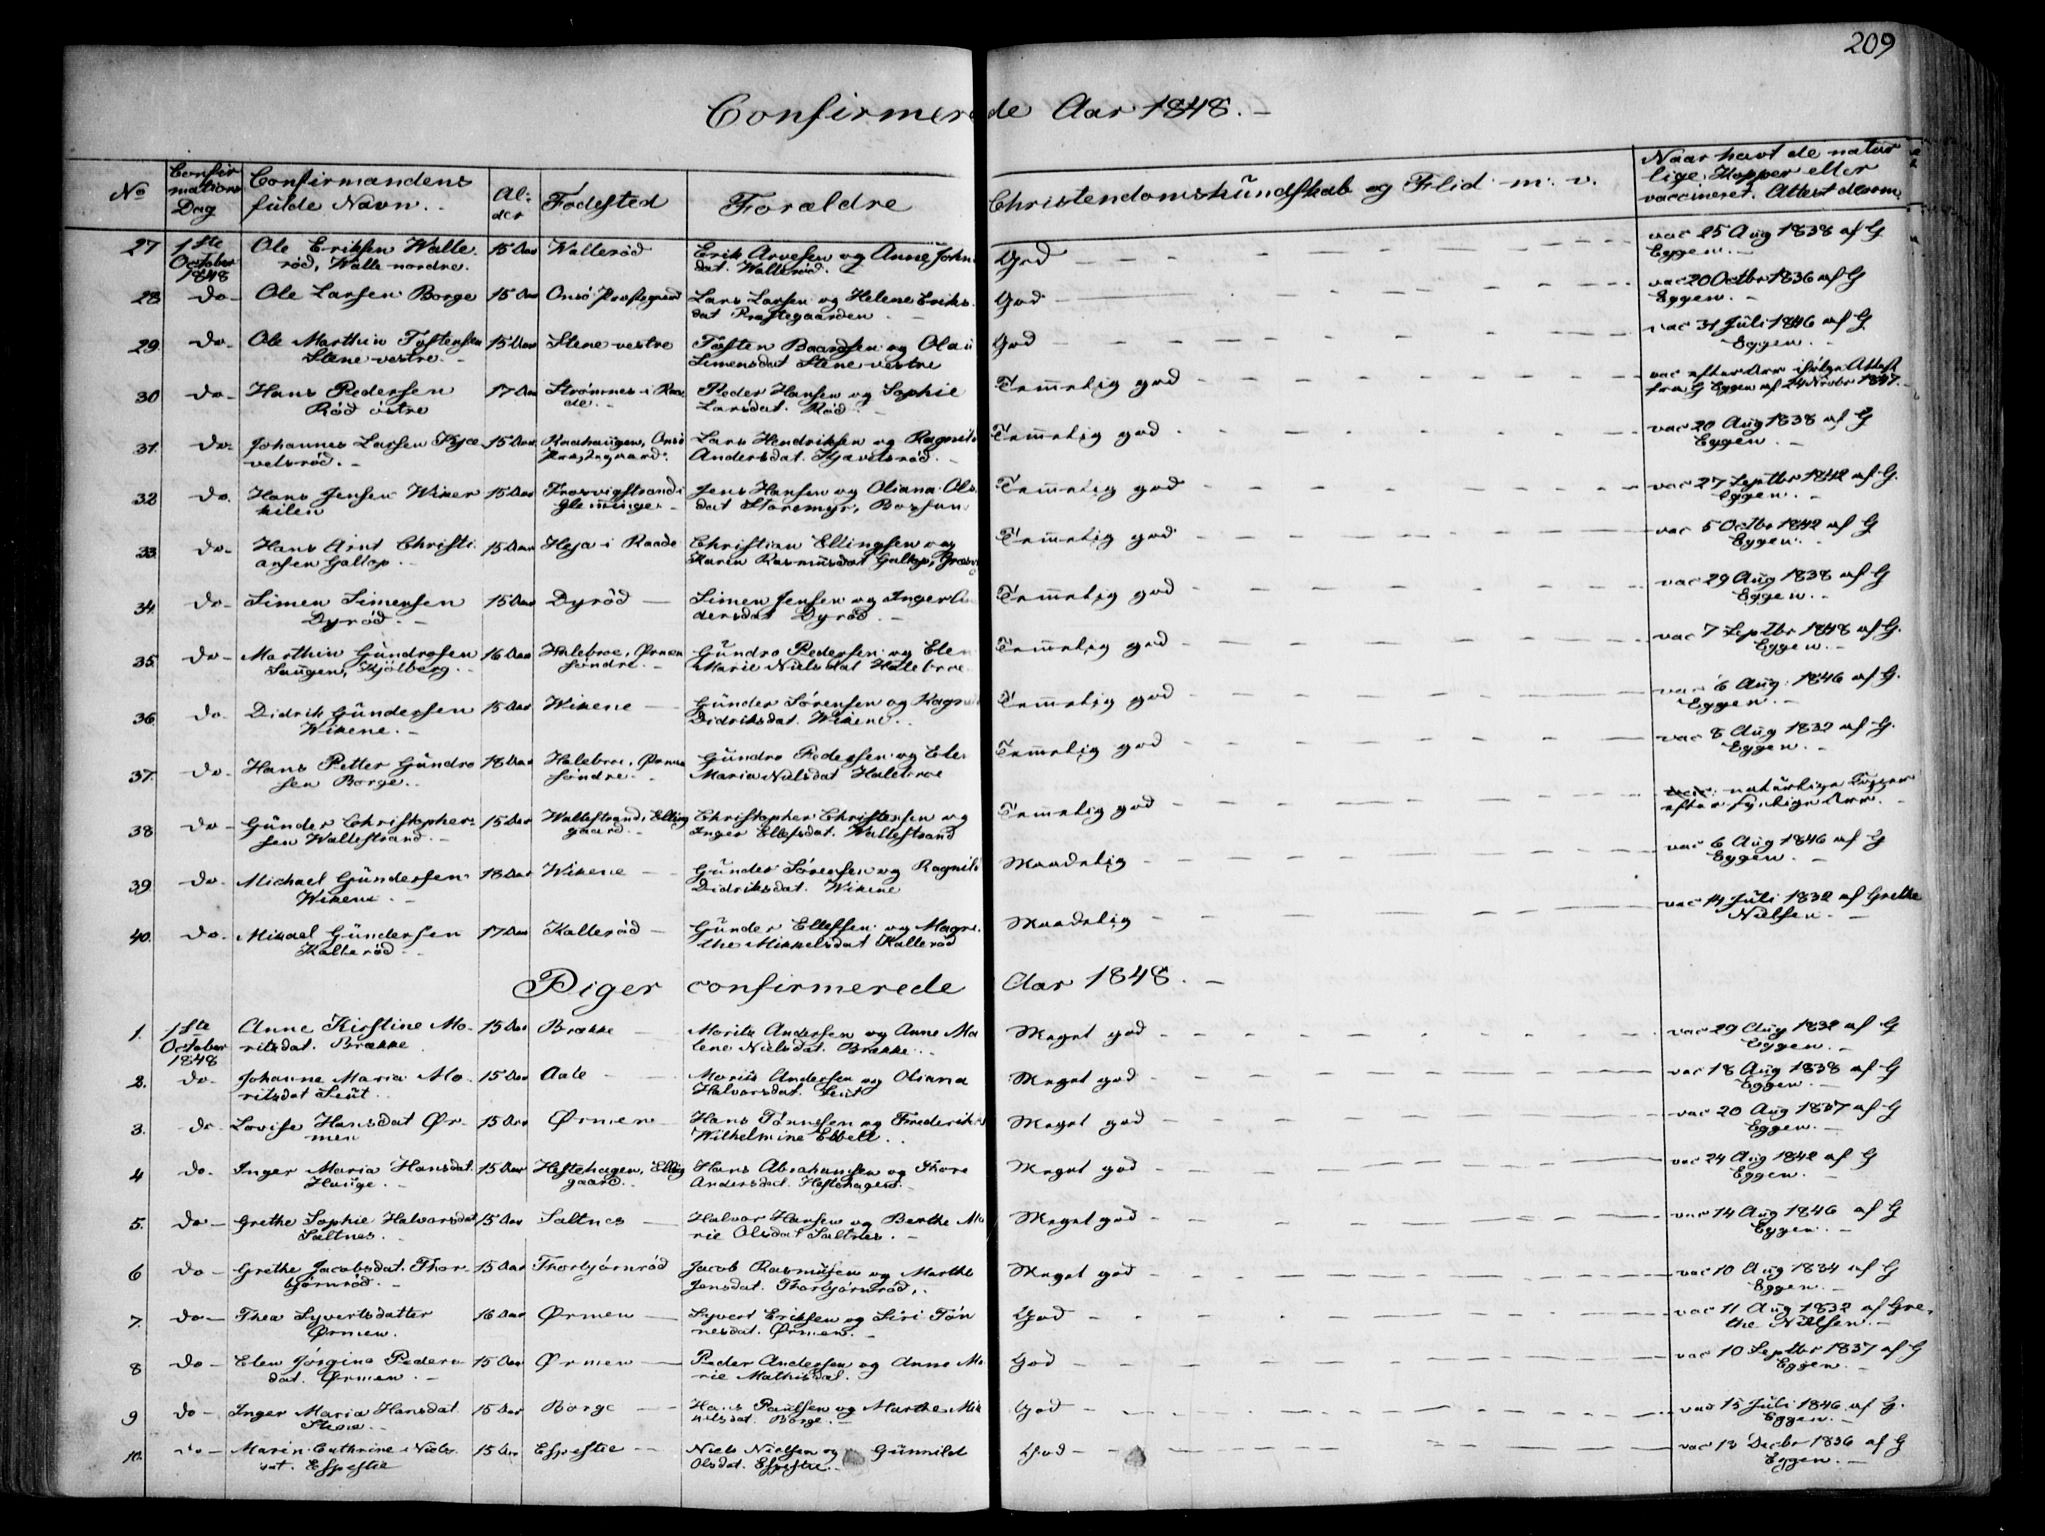 209
Confirmerede Aar 1848.-
No
Confirmations Dag
Confirmandens fulde Navn.
Alder
Fødested
Forældre
Christendomskundskab og Flid m. v.
Naar havt de naturlige Kopper eller vaccineret. Attest derom
27 1ste October 1848 Ole Eriksen Wallerød, Walle nordre. 15 Aar Wallerød Erik Arvesen og Anne Johnsdat. Wallerød. God vac 25 Aug 1838 af G Eggen.-
28 do- Ole Larsen Borge 15 Aar Onsø Præstegaard Lars Larsen og Helene Eriksdat Præstegaarden God vac 20 Octbr 1836 af G Eggen.-
29. do- Ole Marthin Tostensen Stene vestre.- 15 Aar Stene vestre Tosten Baardsen og Olau Simensdat Stene vestre God vac 31 Juli 1846 af G Eggen.-
30 do- Hans Pedersen Rød østre 17 Aar Strømnes i Raade.- Peder Hansen og Sophie Larsdat. Rød.- Temmelig god vac efter Arr ifølge Attest fra G Eggen af 24 Novbr 1847.-
31. do- Johannes Larsen Kjævelsrød.- 15 Aar Raahaugen, Onsø Præstegaard. Lars Hendriksen og Ragnild Andersdat. Kjævelsrød.- Temmelig god vac 20 Aug 1838 af G Eggen.-
32 do. Hans Jensen Wikerkilen 15 Aar Trosvigstrand i Glemminge- Jens Hansen og Oliana Olsdat Storemyr, Temmelig god vac 27 Septbr 1842 af G. Eggen.-
33. do- Hans Arnt Christiansen Galtop.- 15 Aar Heja i Raade Christian Ellingsen og Karen Rasmusdat Galtop, Temmelig god vac 5 Octbr 1842 af G Eggen.-
34 do- Simen Simensen Dyrød.- 15 Aar Dyrød Simen Jensen og Inger Andersdat Dyrød.- Temmelig god vac 29 Aug 1838 af G Eggen.-
35. do- Marthin Gundrosen Haugen, Kjølberg.- 16 Aar Halebroe, Ørmen søndre.- Gundro Pedersen og Elen Marie Nielsdat Halebroe Temmelig god vac 7 Septbr 1848 af G. Eggen.-
36 do- Didrik Gundersen Wikene.- 15 Aar Wikene Gunder Sørensen og Ragnild Didriksdat. Wikene.- Temmelig god vac 6 Aug. 1846 af G. Eggen.-
37. do- Hans Petter Gundrosen Borge.- 18 Aar Halebroe, Ørmen søndre.- Gundro Pedersen og Elen Maria Nielsdat Halebroe Temmelig god vac 8 Aug 1832 af G. Eggen.-
38 do- Gunder Christophersen Wallestrand.- 15 Aar Wallestrand, Elliggaard.- Christopher Christensen og Inger Ellefsdat. Wallestrand Temmelig god naturlige Kopper efter synlige Arr.-
39 do- Michael Gundersen Wikene.- 18 Aar Wikene Gunder Sørensen og Ragnild Didriksdat. Wikene Maadelig vac 6 Aug 1846 af G Eggen.-
40. do. Mikael Gundersen Kallerød.- 17 Aar Kallerød Gunder Ellefsen og Magrethe Mikkelsdat Kallerød Maadelig vac 14 Juli 1832 af Grethe Nielsen.-
Piger confirmerede Aar 1848.-
1. 1ste October 1848 Anne Kirstine Moritsdat. Brække 15 Aar Brække Morits Andersen og Anne Malene Nielsdat. Brække.- Meget god vac 29 Aug 1832 af G Eggen.-
2. do- Johanne Maria Moritsdat Seut.- 15 Aar Aale Morits Andersen og Oliana Halvorsdat. Seut Meget god vac 18 Aug 1838 af G Eggen.-
3. do Lovise Hansdat Ørmen 15 Aar Ørmen Hans Tønnesen og Frederikke Wilhelmine Ebbell. Meget god vac 20 Aug 1837 af G Eggen.-
4 do- Inger Maria Hansdat. Hauge.- 15 Aar Hestehagen, Elliggaard.- Hans Abrahamsen og Thore Andersdat. Hestehagen.- Meget god vac 24 Aug 1842 af G Eggen.-
5. do- Grethe Sophie Halvorsdat Saltnes.- 15 Aar Saltnes Halvor Hansen og Berthe Marie Olsdat Saltnes.- Meget god vac 14 Aug 1846 af G Eggen.-
6 do- Grethe Jacobsdat. Thorbjørnrød.- 15 Aar Thorbjørnrød Jacob Rasmusen og Marthe Jensdat. Thorbjørnrød. Meget god vac 10 Aug 1834 af G Eggen.-
7. do- Thea Syvertsdatter Ørmen. 16 Aar Ørmen Syvert Eriksen og Siri Tønnesdat. Ørmen.- God vac 11 Aug 1832 af Grethe Nielsen.-
8 do- Elen Jørgine Pedersdat. Ørmen.- 15 Aar Ørmen Peder Andersen og Anne Marie Mathisdat. God vac 10 Septbr 1837 af G Eggen.-
9 do- Inger Maria Hansdat. Stene.- 15 Aar Borge Hans Paulsen og Marthe Mikkelsdat. Borge.- God vac 15 Juli 1846 af G. Eggen.-
10. do- Maren Cathrine Nielsdat. Espestie 15 Aar Espestie Niels Nielsen og Gunnild Olsdat. Espestie.- God vac 13 Decbr 1836 af G Eggen.-